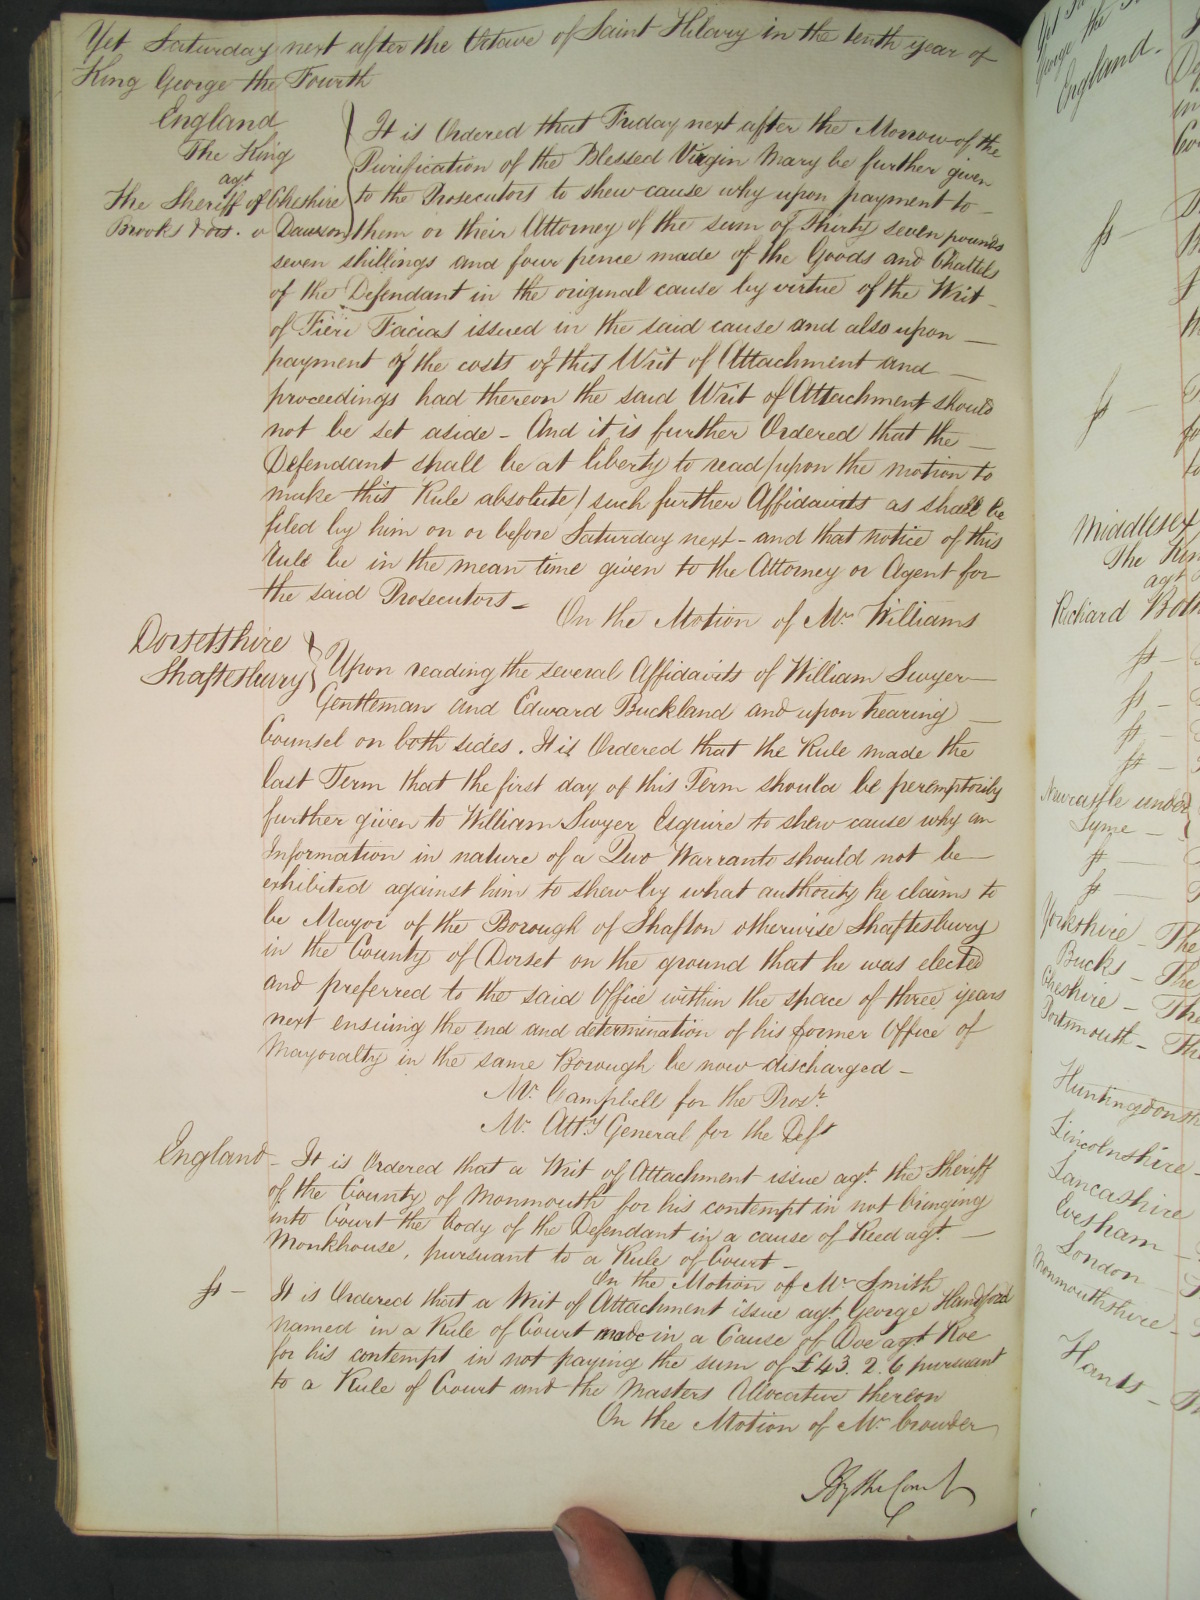 Yet Saturday next after the Octave of Saint Hilary in the tenth year of
King George the Fourth
England
The King
agt
The Sheriff of Cheshire
Brooks & ors. v Dawson
It is Ordered that Friday next after the Morrow of the
Purification of the Blessed Virgin Mary be further given
to the Prosecutors to shew cause why upon payment to
them or their Attorney of the sum of Thirty seven pounds
seven shillings and four pence made of the Goods and Chattels
of the Defendant in the original cause by virtue of the Writ
of Fieri Facias issued in the said cause and also upon
payment of the costs of this Writ of Attachment and
proceedings had thereon the said Writ of Attachment should
not be set aside - And it is further Ordered that the
Defendant shall be at liberty to read/upon the motion to
make this Rule absolute/such further Affidavits as shall be
filed by him on or before Saturday next - and that notice of this
Rule be in the mean time given to the Attorney or Agent for
the said Prosecutors -
On the Motion of Mr Williams
Dorsetshire
Shaftesbury
Upon reading the several Affidavits of William Swyer
Gentleman and Edward Buckland and upon hearing
Counsel on both sides. It is Ordered that the Rule made the
last Term that the first day of this Term should be peremptorily
further given to William Swyer Esquire to shew cause why an
Information in nature of a Quo Warranto should not be
exhibited against him to shew by what authority he claims to
be Mayor of the Borough of Shafton otherwise Shaftesbury
in the County of Dorset on the ground that he was elected
and preferred to the said Office within the space of three years
next ensuing the end and determination of his former Office of
Mayoralty in the same Borough be now discharged -
Mr. Campbell for the Prosr.
Mr. Atty General for the Deft
England - It is Ordered that a Writ of Attachment issue agt. the Sheriff
of the County of Monmouth for his contempt in not bringing
into Court the body of the Defendant in a cause of Reed agt.
Monkhouse, pursuant to a Rule of Court -
On the Motion of Mr Smith
fs - It is Ordered that a Writ of Attachment issue agt George Handford
named in a Rule of Court made in a Cause of Doe agt Roe
for his contempt in not paying the sum of £43. 2. 6 pursuant
to a Rule of Court and the Masters Allocatur thereon
On the Motion of Mr Crowder
By the Court
England.
fs -
fs -
Middlesex
The King
agt
Richard
fs -
fs -
fs -
fs -
Newcastle under
Lyme -
fs -
fs -
Yorkshire - The
Bucks - The
Cheshire - The
Portsmouth - The
Lincolnshire -
Lancashire
Evesham -
London
Monmouthshire -
Hants -